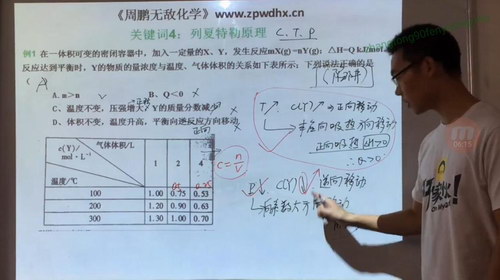 《周鹏无敌化学》www.zpwdhx.cn
关键词4：列夏特勒原理 C.T.P
例1 在一体积可变的密闭容器中，加入一定量的X、Y，发生反应mX(g)=nY(g)；△H=Q kJ/mol
反应达到平衡时，Y的物质的量浓度与温度、气体体积的关系如下表所示；下列说法正确的是
（ A
A. m>n √ B、Q<0 ×
C、温度不变，压强增大Y的质量分数减少 ×
D、体积不变，温度升高，平衡向逆反应方向移动 ×
正向
气体体积/L
c(Y)/
mol·L⁻¹
温度/℃
1 2 4
100 1.00 0.75 0.53
200 1.20 0.90 0.63
300 1.30 1.00 0.70
C=n/V
T↗ C(Y)↗ → 正向移动
正向吸热 △H>0
∴ Q>0
P↓ C(Y)
逆向移动